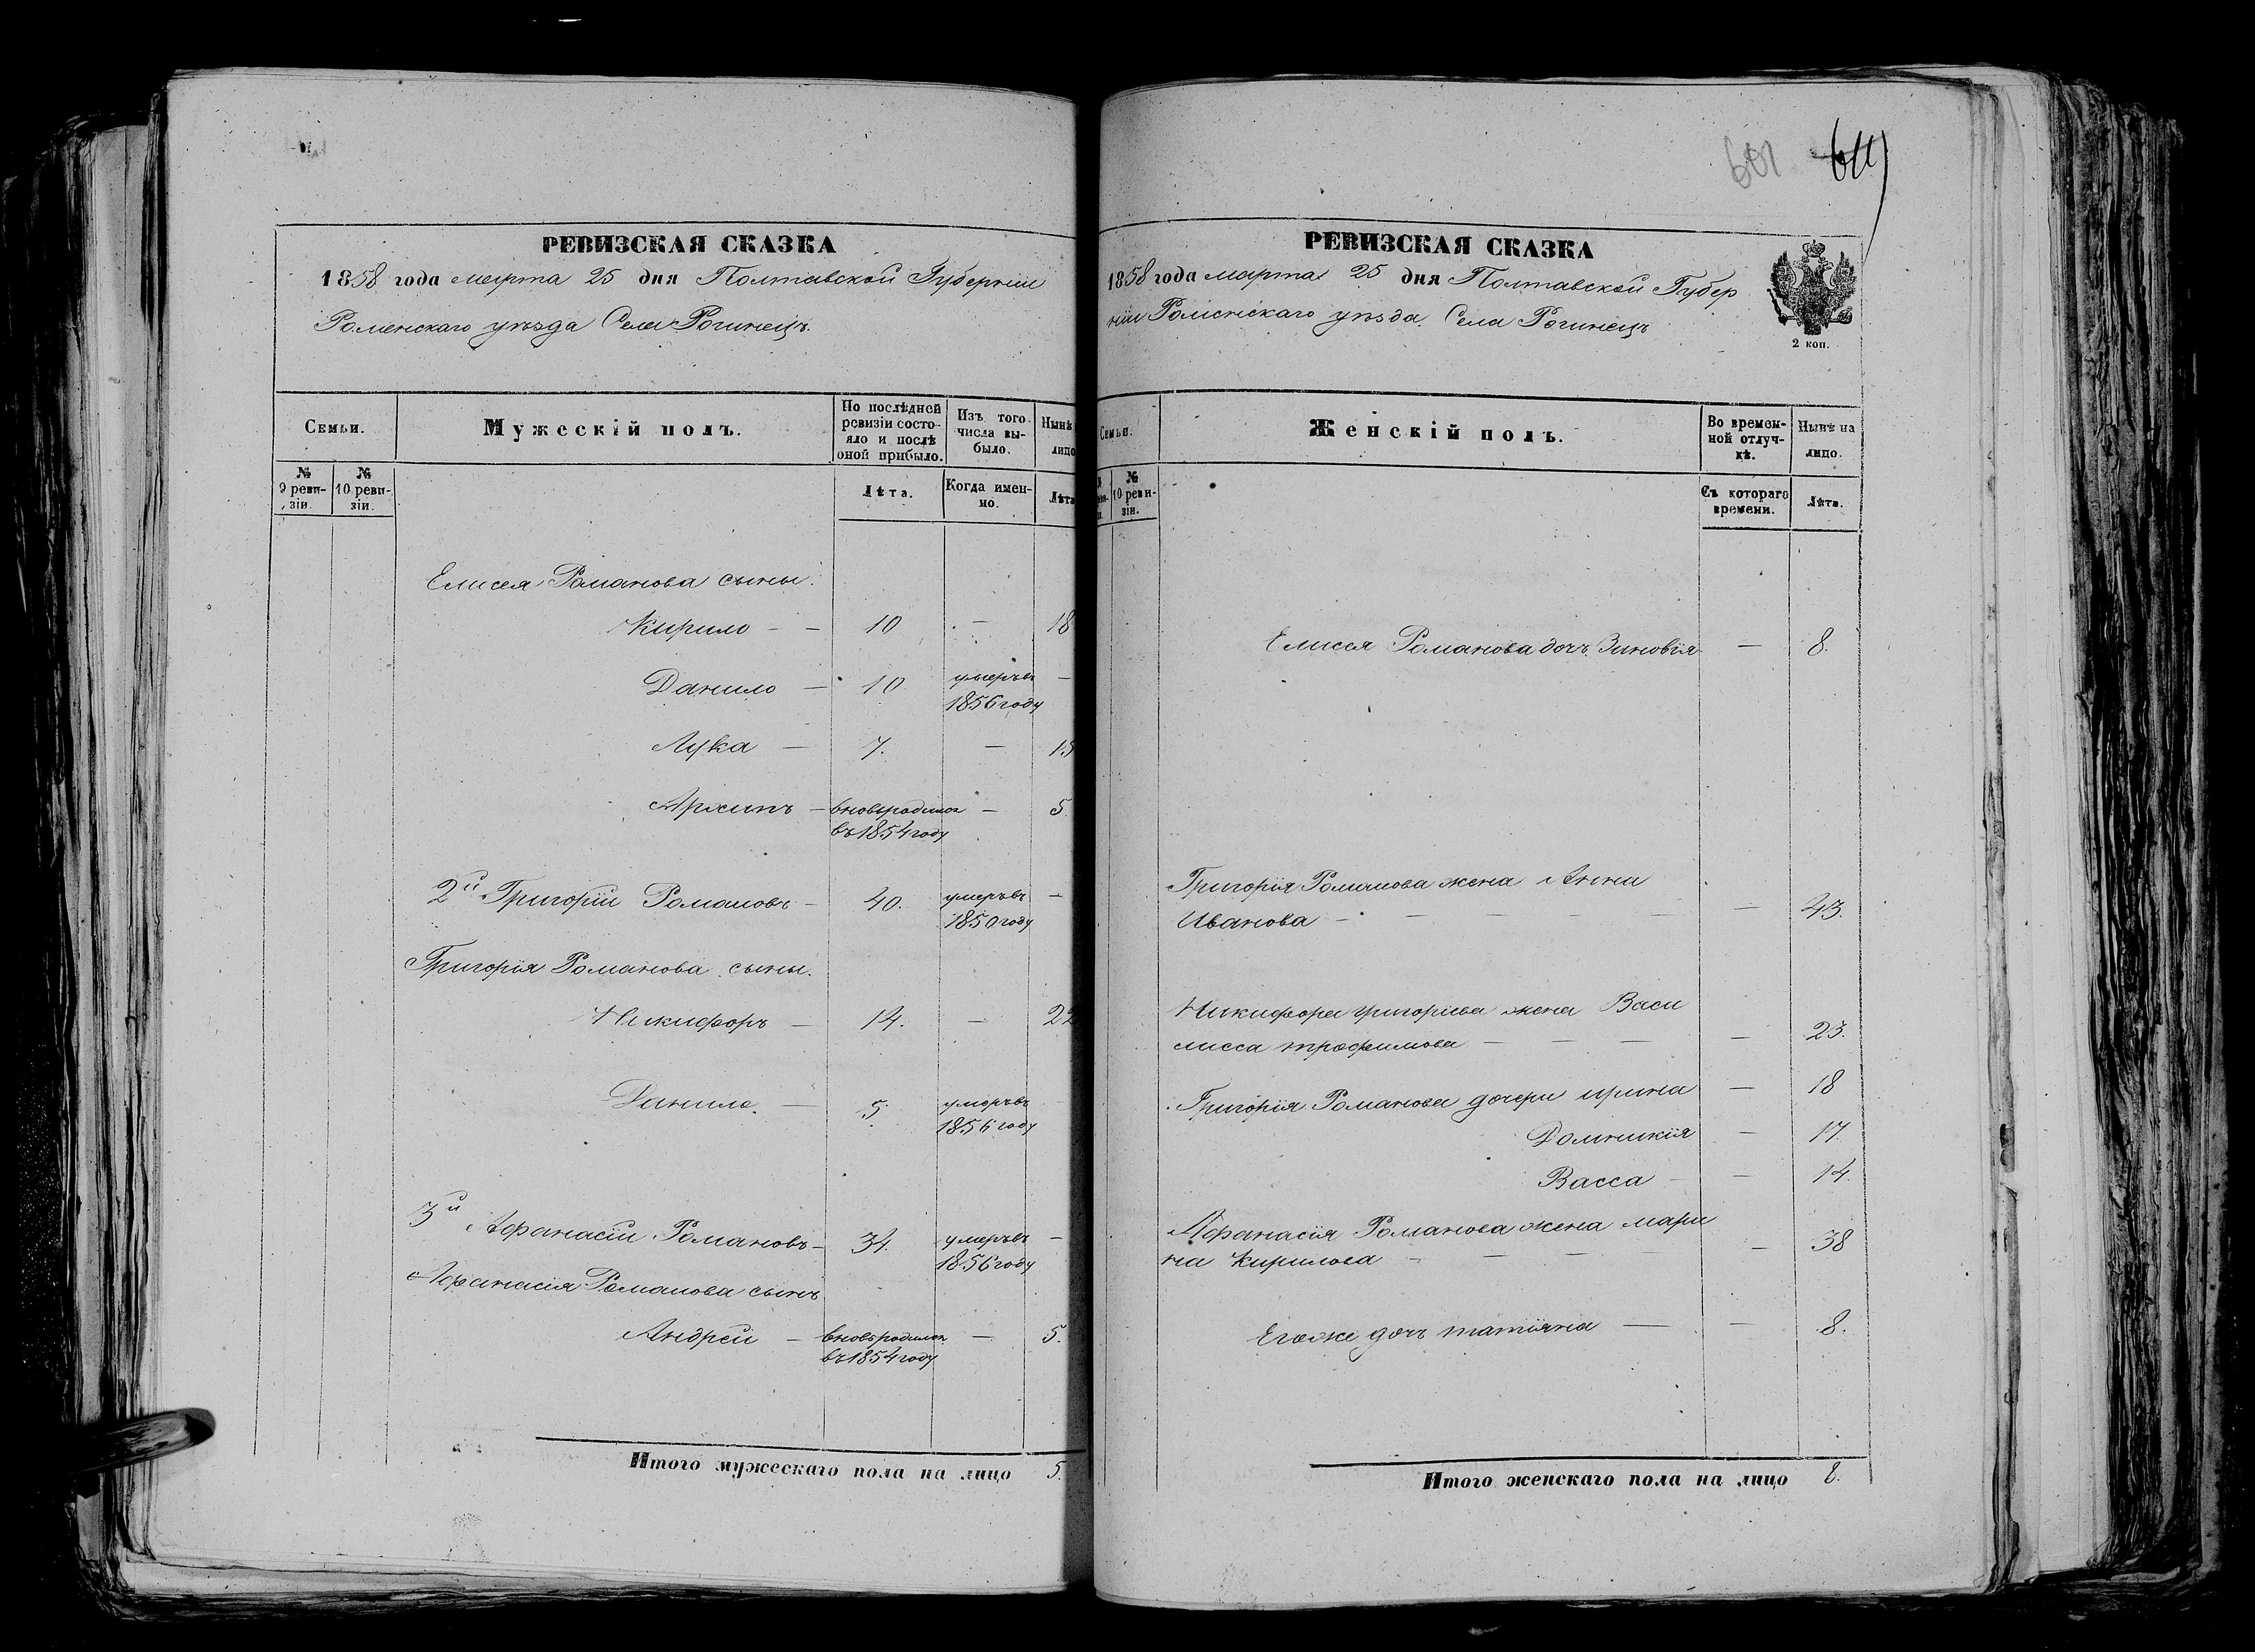 РЕВИЗСКАЯ СКАЗКА
1858 года марта 25 дня Полтавской Губерніи
Роменскаго уѣзда Села Рогинецъ
Семьи.
Мужескій полъ.
По послѣдней
ревизіи состо-
яло и послѣ
оной прибыло.
Изъ того
числа вы-
было.
Нынѣ
лицо
№
9 реви-
зіи.
№
10 реви-
зіи.
Лѣта.
Когда имен-
но.
Лѣта
Елисея Романова сыны.
Кирило — — 10 — 18
Данило — 10 умеръ въ —
1856 году
Лука — 7. — 15
Архипъ — вновьродился — 5.
въ 1854 году
2й Григорій Романовъ — 40. умеръ въ —
1850 году
Григорія Романова сыны.
Никифоръ — 14. — 22
Данило — 5. умеръ въ
1856 году
3й Афанасій Романовъ — 34. умеръ въ —
1856 году
Афанасія Романова сынъ
Андрей — вновьродился — 5.
въ 1854 году
Итого мужескаго пола на лицо 5.
601 611
РЕВИЗСКАЯ СКАЗКА
1858 года марта 25 дня Полтавской Губер
ніи Роменскаго уѣзда Села Рогинецъ
2 коп.
Семьи.
Женскій полъ.
Во времен-
ной отлуч-
кѣ.
Нынѣ на
лицо.
№
10 реви-
зіи.
Съ котораго
времени.
Лѣта.
Елисея Романова дочь Зиновія — 8.
Григорія Романова жена Анна
Иванова — — — — — 43.
Никифора григоріева жена Васи
лисса трофимова — — — — 23.
Григорія Романова дочери ирина — 18
Домникія — 17.
Васса — — 14.
Афанасія Романова жена мари
на Кирилова — — — — 38
Егоже дочь татіяна — — 8.
Итого женскаго пола на лицо 8.